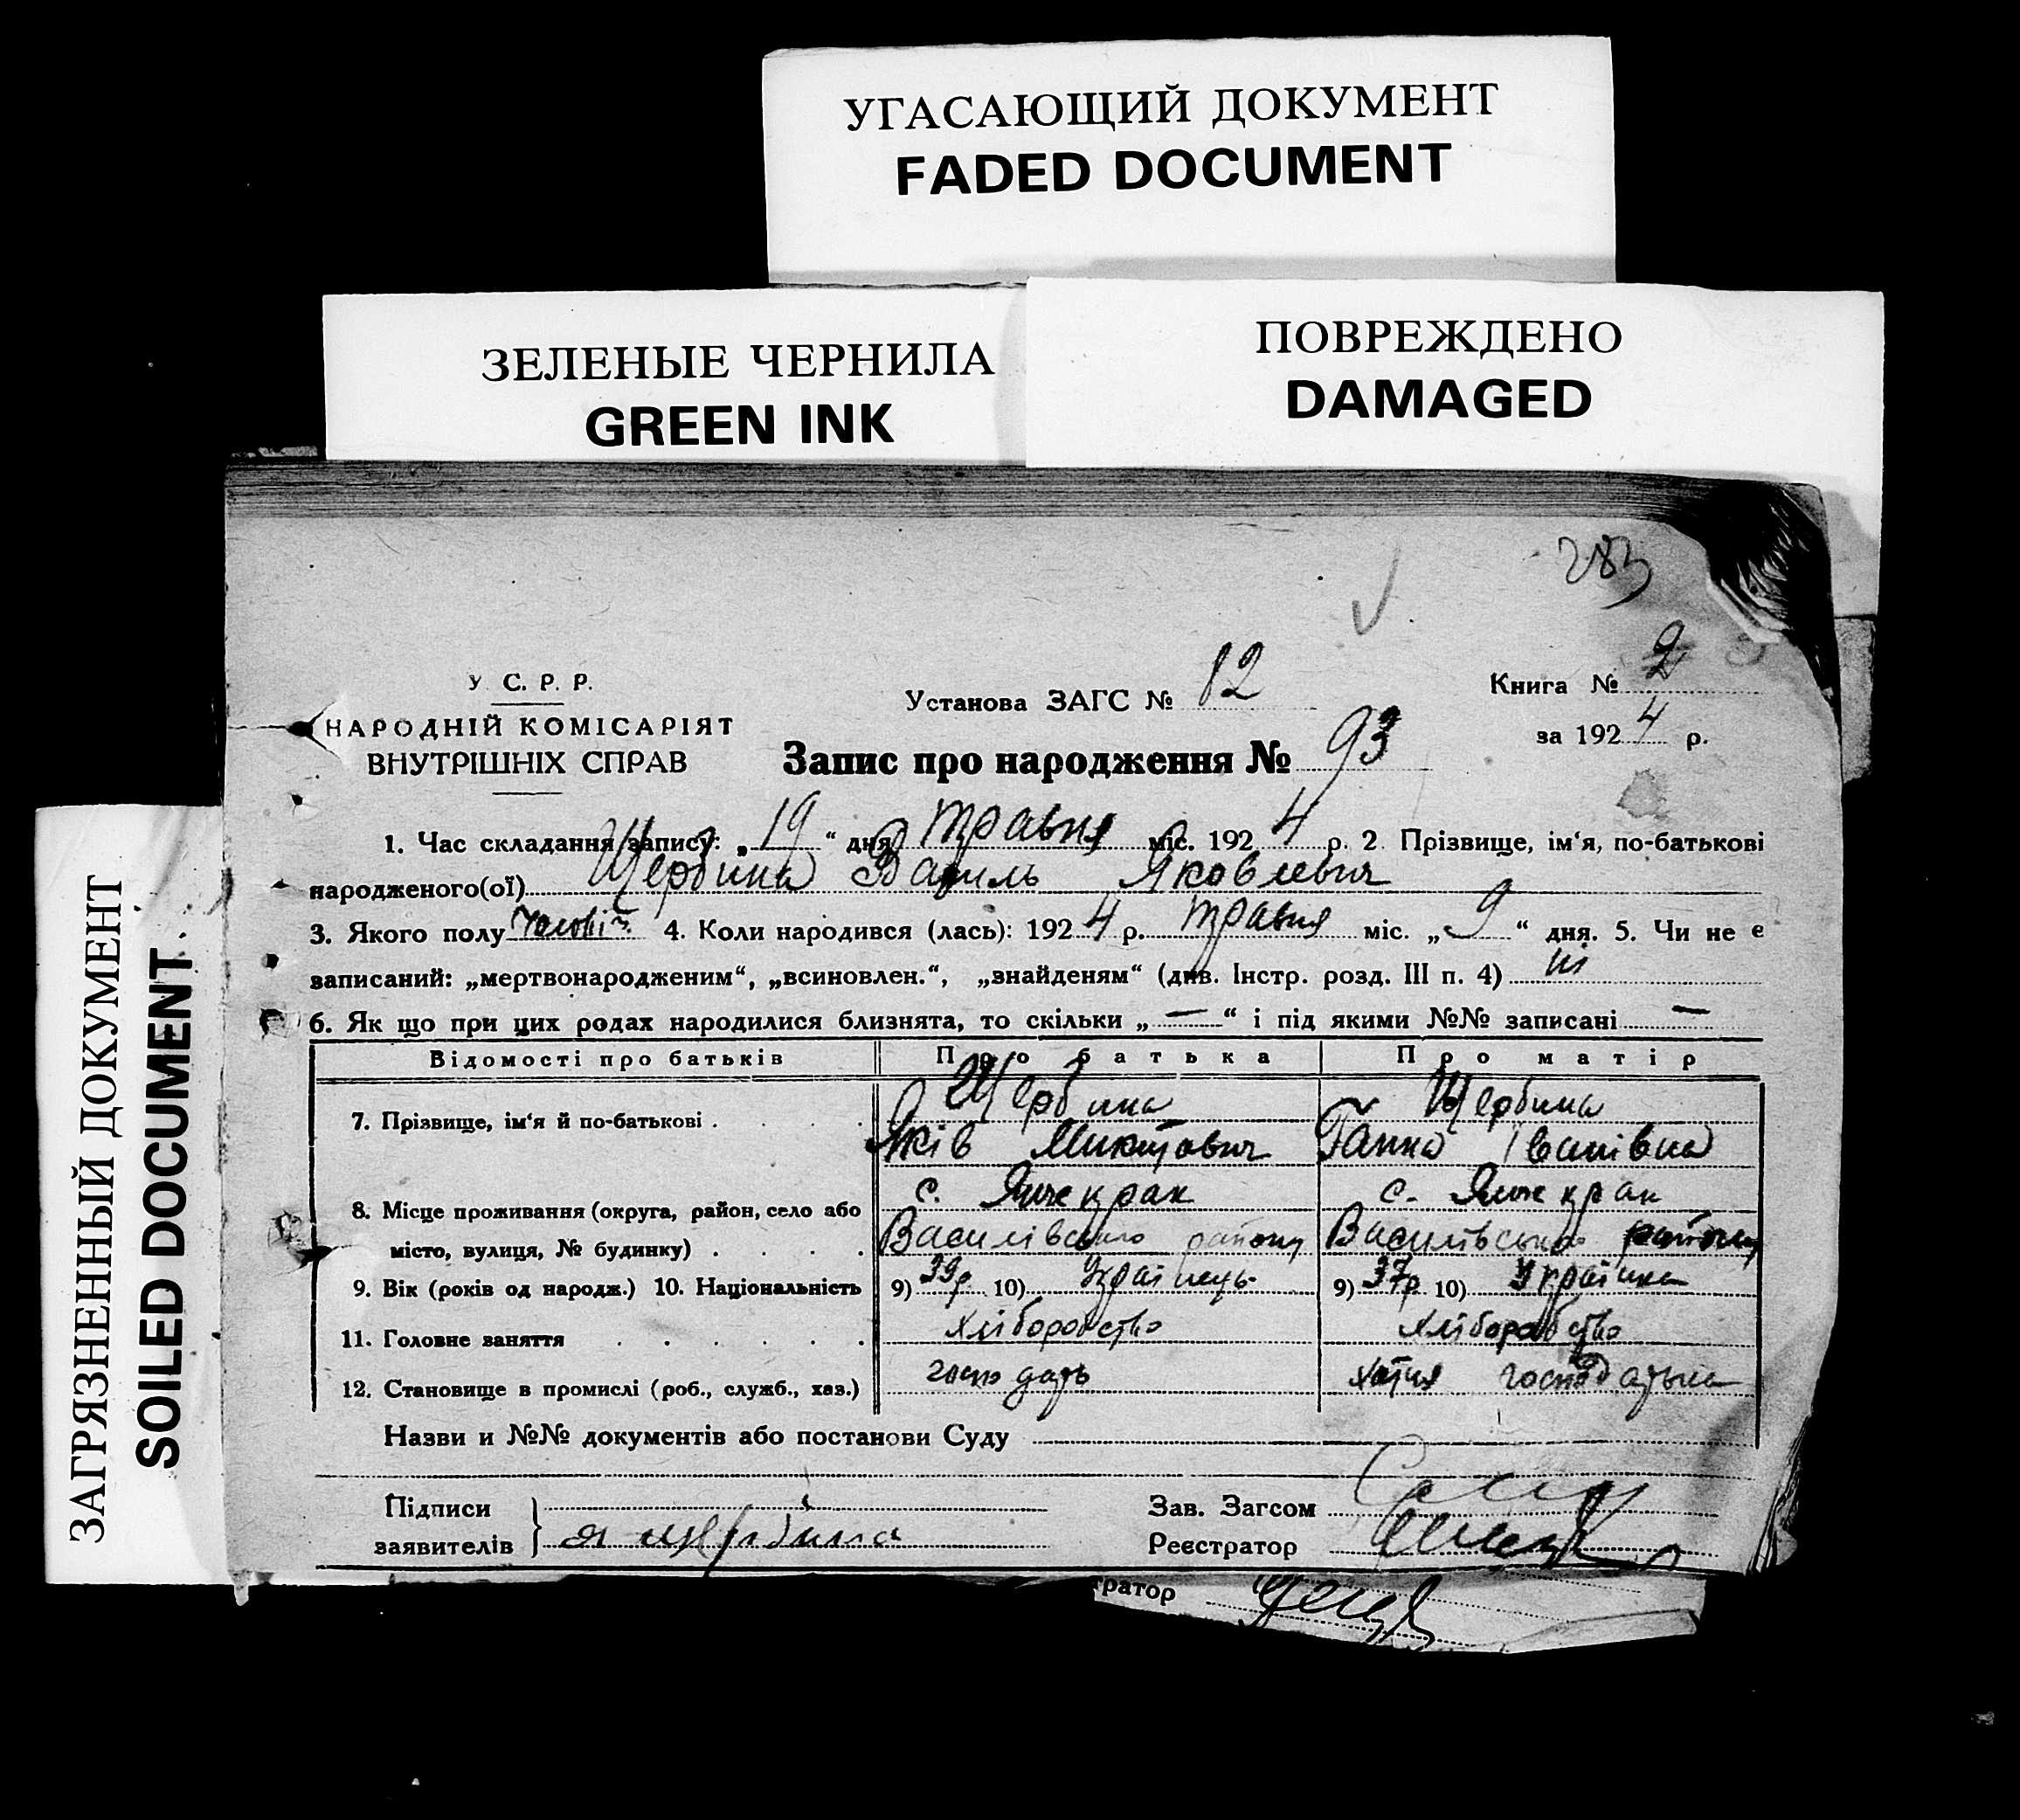 УГАСАЮЩИЙ ДОКУМЕНТ
FADED DOCUMENT
ЗЕЛЕНЫЕ ЧЕРНИЛА
GREEN INK
ПОВРЕЖДЕНО
DAMAGED
ЗАГРЯЗНЕННЫЙ ДОКУМЕНТ
SOILED DOCUMENT
283
У. С. Р. Р.
НАРОДНІЙ КОМІСАРІЯТ
ВНУТРІШНІХ СПРАВ
Установа ЗАГС № 82
Книга № 2
за 1924 р.
Запис про народження № 93
1. Час складання запису: „19“ дня травня міс. 1924 р. 2. Прізвище, ім‘я, по-батькові
народженого(ої) Щербина Василь Яковлевич
3. Якого полу чоловіч. 4. Коли народився (лась): 1924 р. травня міс. „9“ дня. 5. Чи не є
записаний: „мертвонародженим“, „всиновлен.“, „знайденям“ (див. Інстр. розд. III п. 4) ні
6. Як що при цих родах народилися близнята, то скільки „—“ і під якими №№ записані —
Відомості про батьків Про батька Про матір
Щербина Щербина
7. Прізвище, ім‘я й по-батькові
Яків Микитович Ганна Іванівна
с. Янчекрак с. Янчекрак
8. Місце проживання (округа, район, село або
місто, вулиця, № будинку) Василівського району Василівського району
9. Вік (років од народж.) 10. Національність 9) 39р. 10) Українець 9) 37р 10) Українка
11. Головне заняття хліборобство хліборобство
12. Становище в промислі (роб., служб., хаз.) господарь хатня господарька
Назви и №№ документів або постанови Суду
Підписи
заявителів я щербина
Зав. Загсом
Реєстратор
тратор